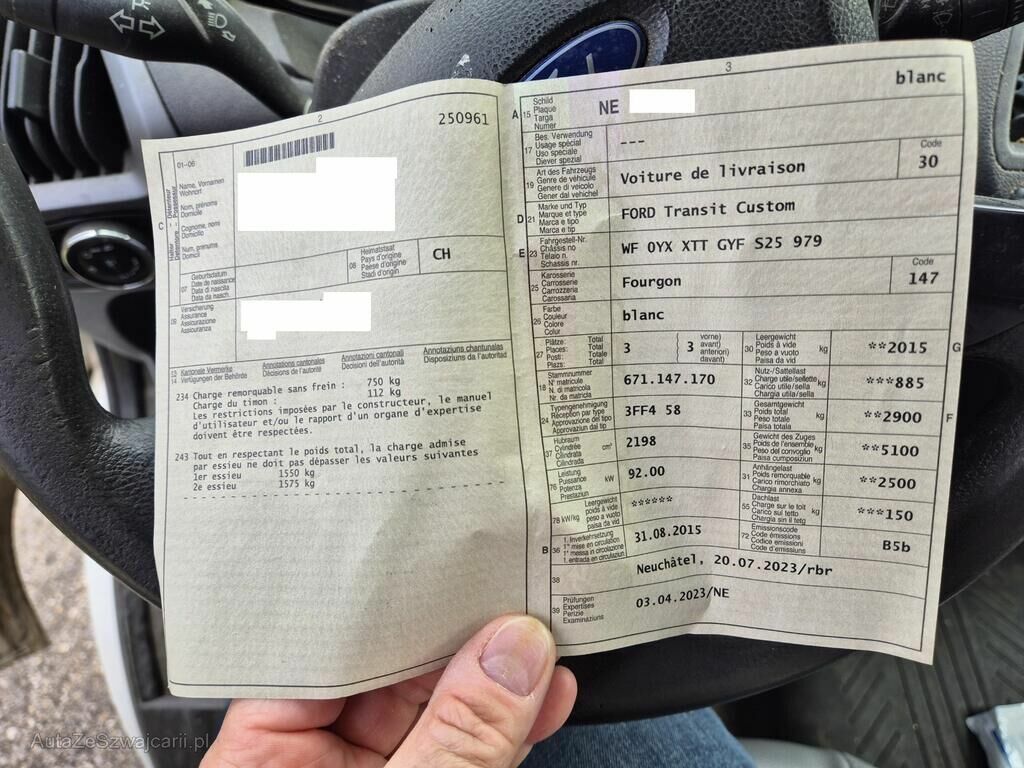 2
250961
01-06
C
Halter Détenteur Detentore Possessur
Name, Vornamen
Wohnort
Nom, prénoms
Domicile
Cognome, nomi
Domicilio
Num, prenums
Domicil
07
Geburtsdatum
Date de naissance
Data di nascita
Data da nasch.
08
Heimatstaat
Pays d'origine
Paese d'origine
Stadi d'origin
CH
09
Versicherung
Assurance
Assicurazione
Assicuranza
13
14
Kantonale Vermerke
Verfügungen der Behörde
Annotations cantonales
Décisions de l'autorité
Annotazioni cantonali
Decisioni dell'autorità
Annotaziuns chantunalas
Disposiziuns da l'autoritad
234 Charge remorquable sans frein : 750 kg
Charge du timon : 112 kg
Les restrictions imposées par le constructeur, le manuel
d'utilisateur et/ou le rapport d'un organe d'expertise
doivent être respectées.
243 Tout en respectant le poids total, la charge admise
par essieu ne doit pas dépasser les valeurs suivantes
1er essieu 1550 kg
2e essieu 1575 kg
3
blanc
A 15
Schild
Plaque
Targa
Numer
NE
17
Bes. Verwendung
Usage spécial
Uso speciale
Diever spezial
---
19
Art des Fahrzeugs
Genre de véhicule
Genere di veicolo
Gener dal vehichel
Voiture de livraison
Code
30
D 21
Marke und Typ
Marque et type
Marca e tipo
Marca e tip
FORD Transit Custom
E 23
Fahrgestell-Nr.
Châssis no
Telaio n.
Schassis nr.
WF 0YX XTT GYF S25 979
25
Karosserie
Carrosserie
Carrozzeria
Carossaria
Fourgon
Code
147
26
Farbe
Couleur
Colore
Colur
blanc
27
Plätze: Total
Places: Total
Posti: Totale
Plazs: Total
3
3
vorne)
avant)
anteriori)
davant)
30
Leergewicht
Poids à vide
Peso a vuoto
Paisa da vid
kg
**2015
G
18
Stammnummer
N° matricule
N. di matricola
Nr. da matricla
671.147.170
32
Nutz-/Sattellast
Charge utile/sellette
Carico utile/sella
Chargia utila/sella
kg
***885
24
Typengenehmigung
Réception par type
Approvazione del tipo
Approvaziun dal tip
3FF4 58
33
Gesamtgewicht
Poids total
Peso totale
Paisa totala
kg
**2900
F
37
Hubraum
Cylindrée
Cilindrata
Cilindrada
cm³
2198
35
Gewicht des Zuges
Poids de l'ensemble
Peso del convoglio
Paisa cumposiziun
kg
**5100
76
Leistung
Puissance
Potenza
Prestaziun
kW
92.00
31
Anhängelast
Poids remorquable
Carico rimorchiato
Chargia annexa
kg
**2500
78 kW/kg
Leergewicht
poids à vide
peso a vuoto
paisa da vid
******
55
Dachlast
Charge sur le toit
Carico sul tetto
Chargia sin il tetg
kg
***150
B 36
1. Inverkehrsetzung
1re mise en circulation
1a messa in circolazione
1. entrada en circulaziun
31.08.2015
72
Emissionscode
Code émissions
Codice emissioni
Code d'emissiuns
B5b
38
Neuchâtel, 20.07.2023/rbr
39
Prüfungen
Expertises
Perizie
Examinaziuns
03.04.2023/NE
AutaZeSzwajcarii.pl